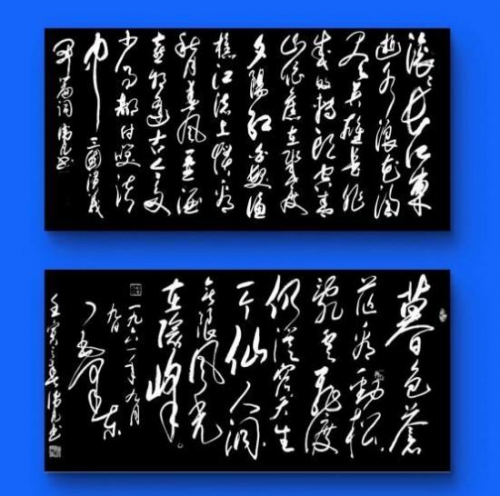 滚滚长江东
逝水浪花淘
尽英雄是非
成败转头空青
山依旧在几度
夕阳红白发渔
樵江渚上惯看
秋月春风一壶酒
喜相逢古今多
少事都付笑谈
中 三国演义
开篇词
暮色苍
茫看劲松
乱云飞渡
仍从容天生
一个仙人洞
无限风光
在险峰
一九六一年九月
九日
毛泽东
壬寅之春